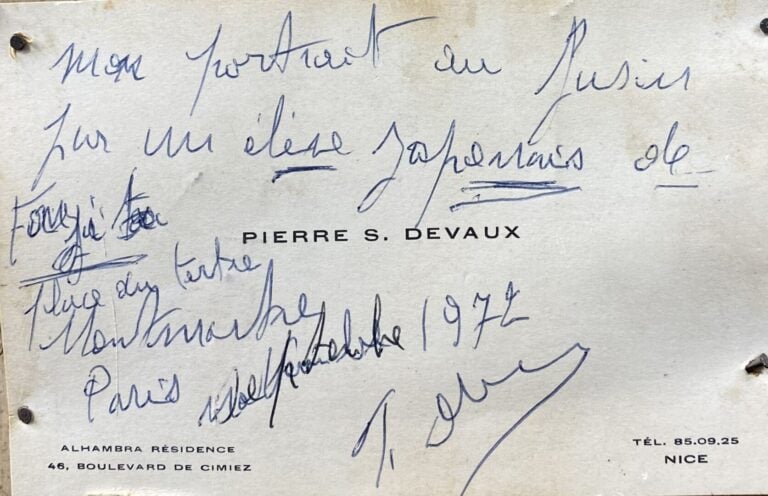 Mon portrait au fusin
par un élève Japonais de
Foujita
PIERRE S. DEVAUX
Place du tertre
Montmartre
Paris septembre 1972
ALHAMBRA RÉSIDENCE
46, BOULEVARD DE CIMIEZ
TÉL. 85.09.25
NICE